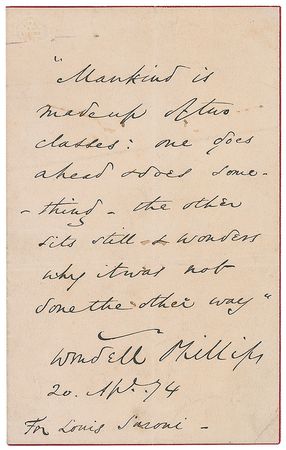 "Mankind is
made up of two
classes: one goes
ahead & does some-
-thing - the other
sits still & wonders
why it was not
done the other way"
Wendell Phillips
20. Apl. 74
For Louis Saroni -